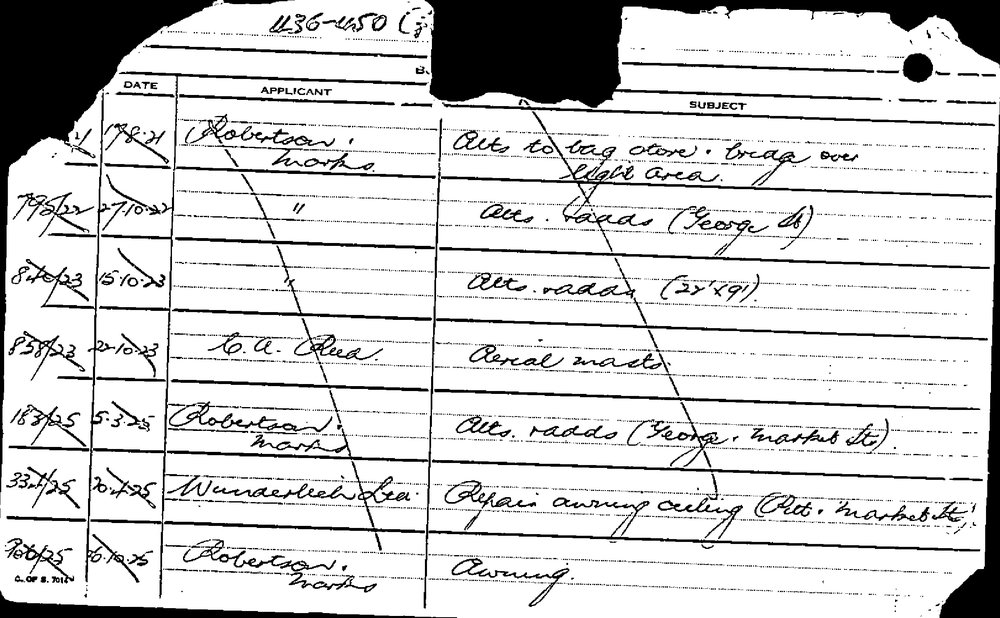 436-450 (
DATE APPLICANT SUBJECT
17.8.21 Robertson . Alts to bag store . bridg over
Marks. light area.
795/22 27.10.22 " Alts. & adds (George St)
846/23 15.10.23 " Alts. & adds (22' x 91').
858/23 22.10.23 C. A. Reed. Aerial masts.
183/25 5.3.25 Robertson . Alts. & adds (George . Market Sts).
Marks
334/25 20.4.25 Wunderlich Ltd. Repair awning ceiling (Pitt . Market Sts).
966/25 6.10.25 Robertson . Awning.
Marks
C. OF S. 7014